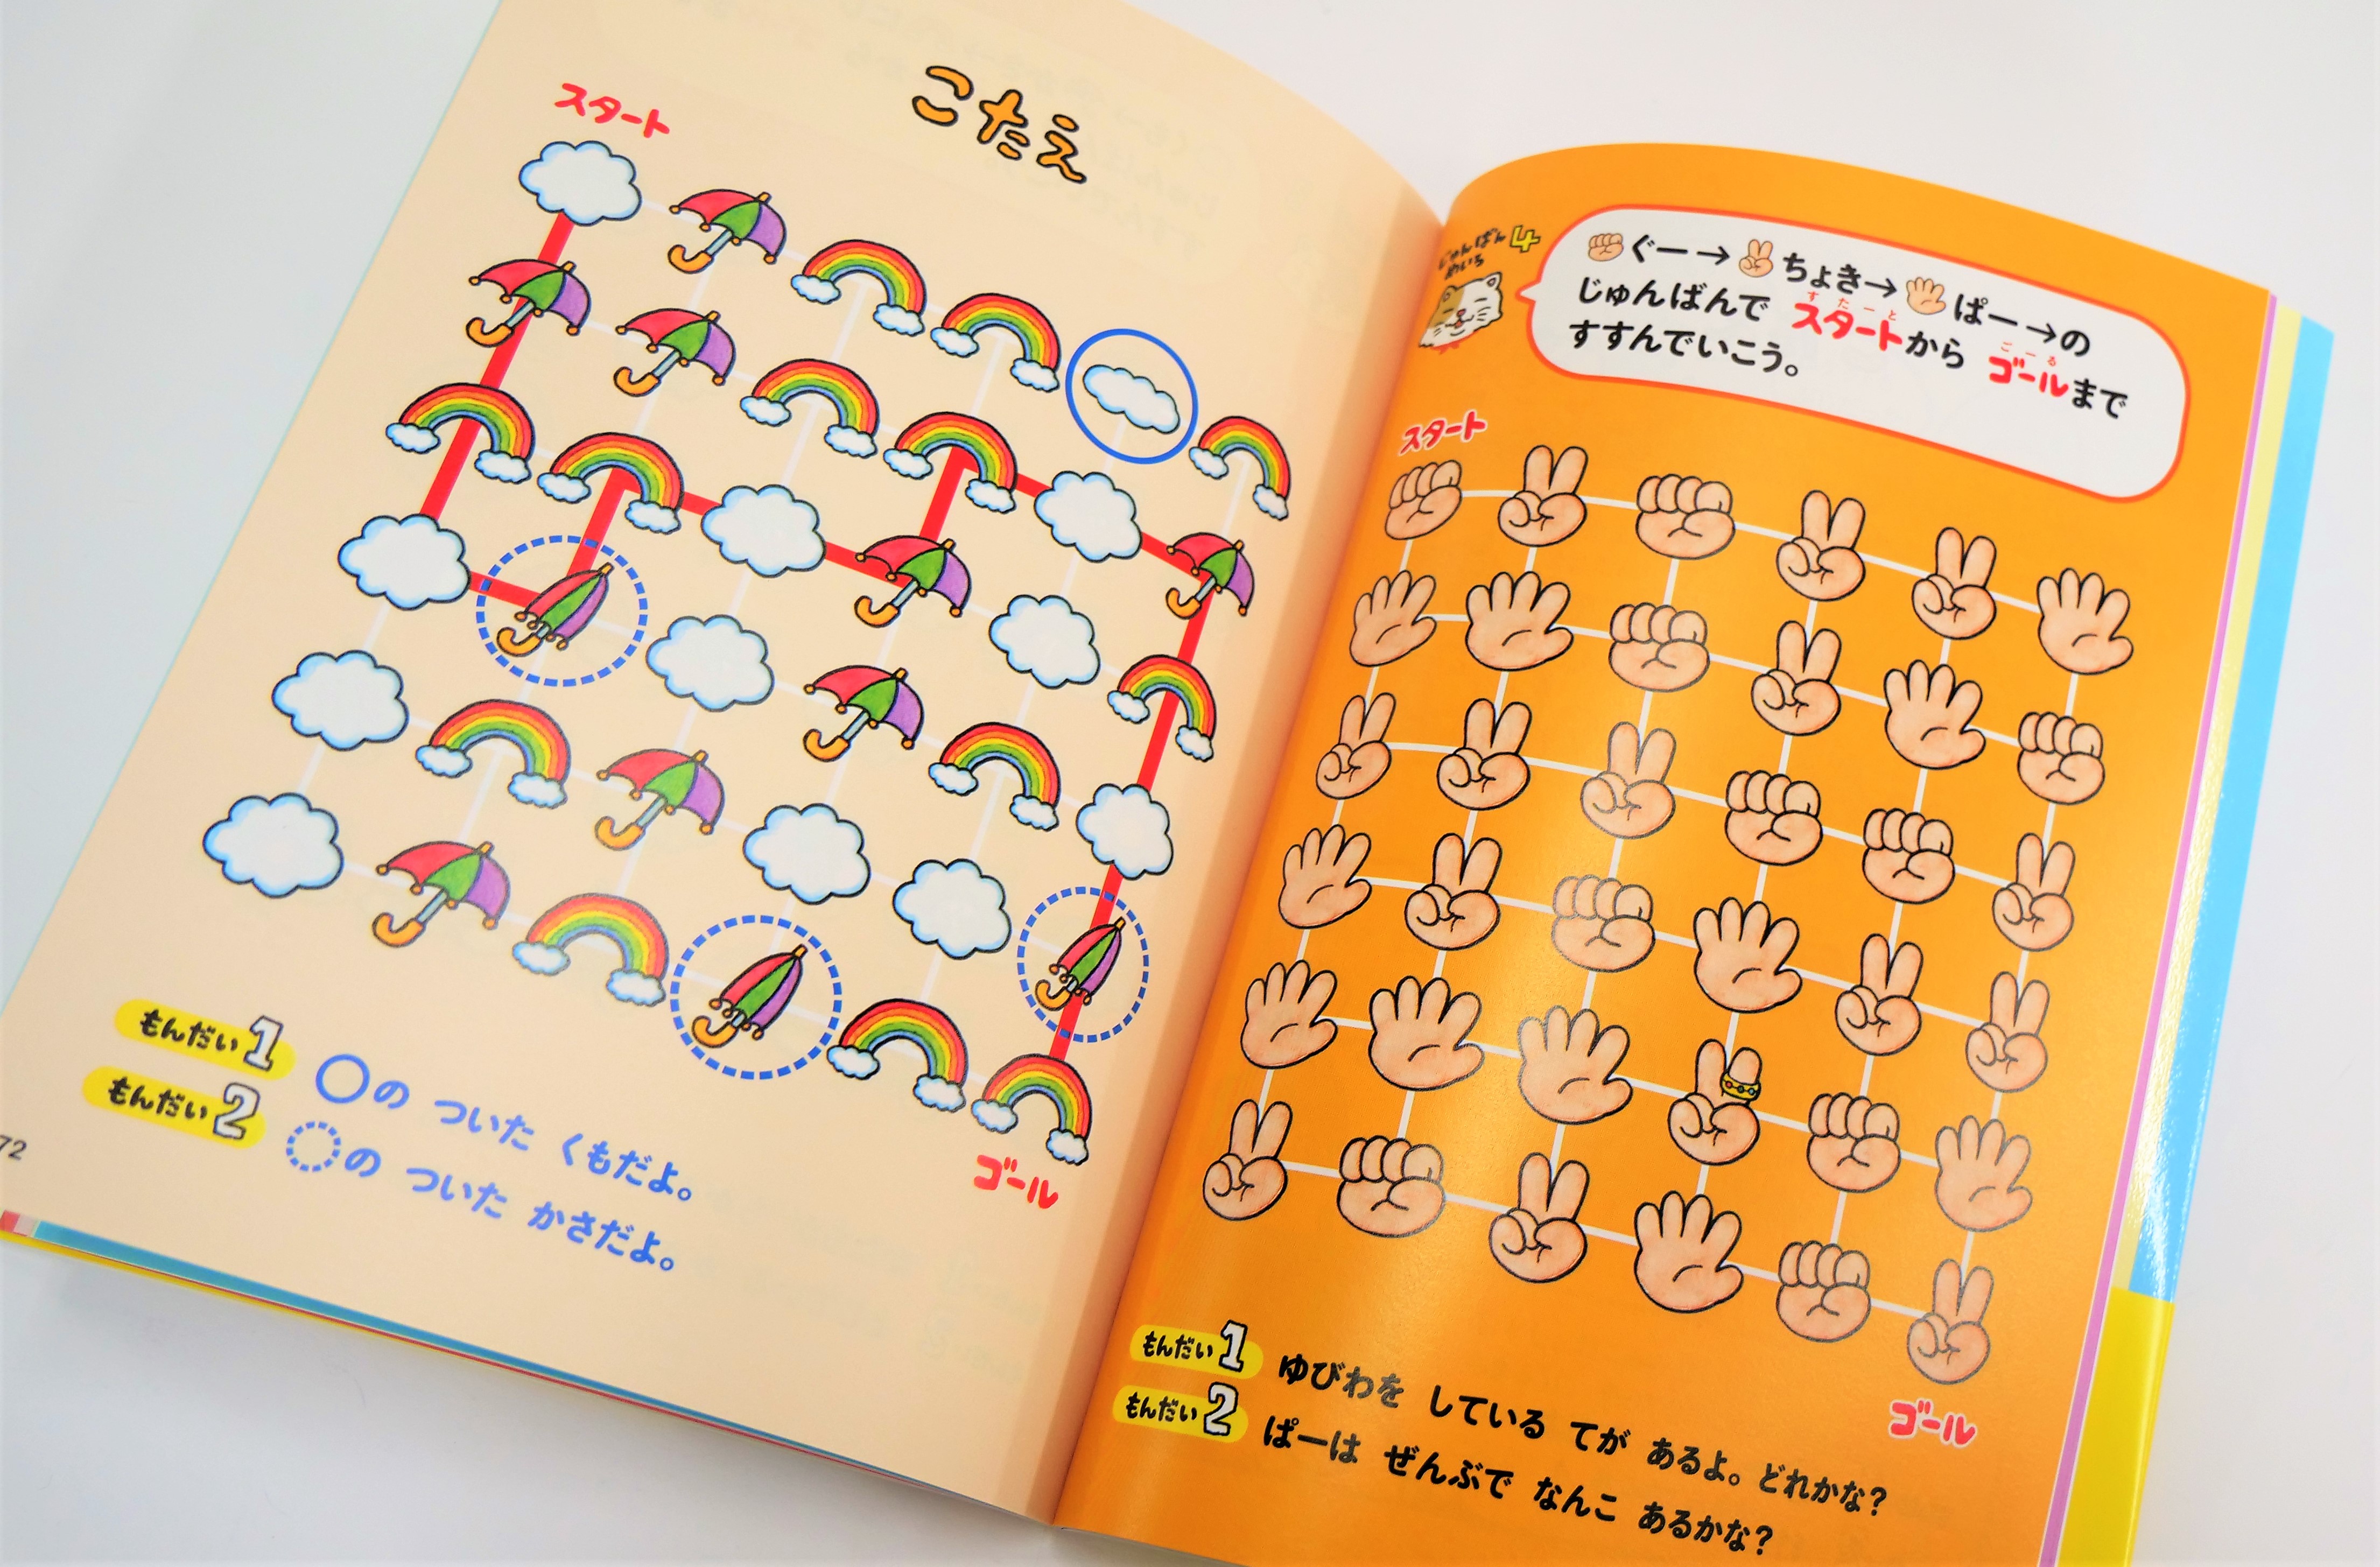 こたえ
スタート
ゴール
もんだい1 ○の ついた くもだよ。
もんだい2 ○の ついた かさだよ。
72
じゅんばん
めいろ
4
ぐー→ ちょき→ ぱー→の
じゅんばんで スタートから ゴールまで
すたーと ごーる
すすんでいこう。
スタート
ゴール
もんだい1 ゆびわを している てが あるよ。どれかな?
もんだい2 ぱーは ぜんぶで なんこ あるかな?